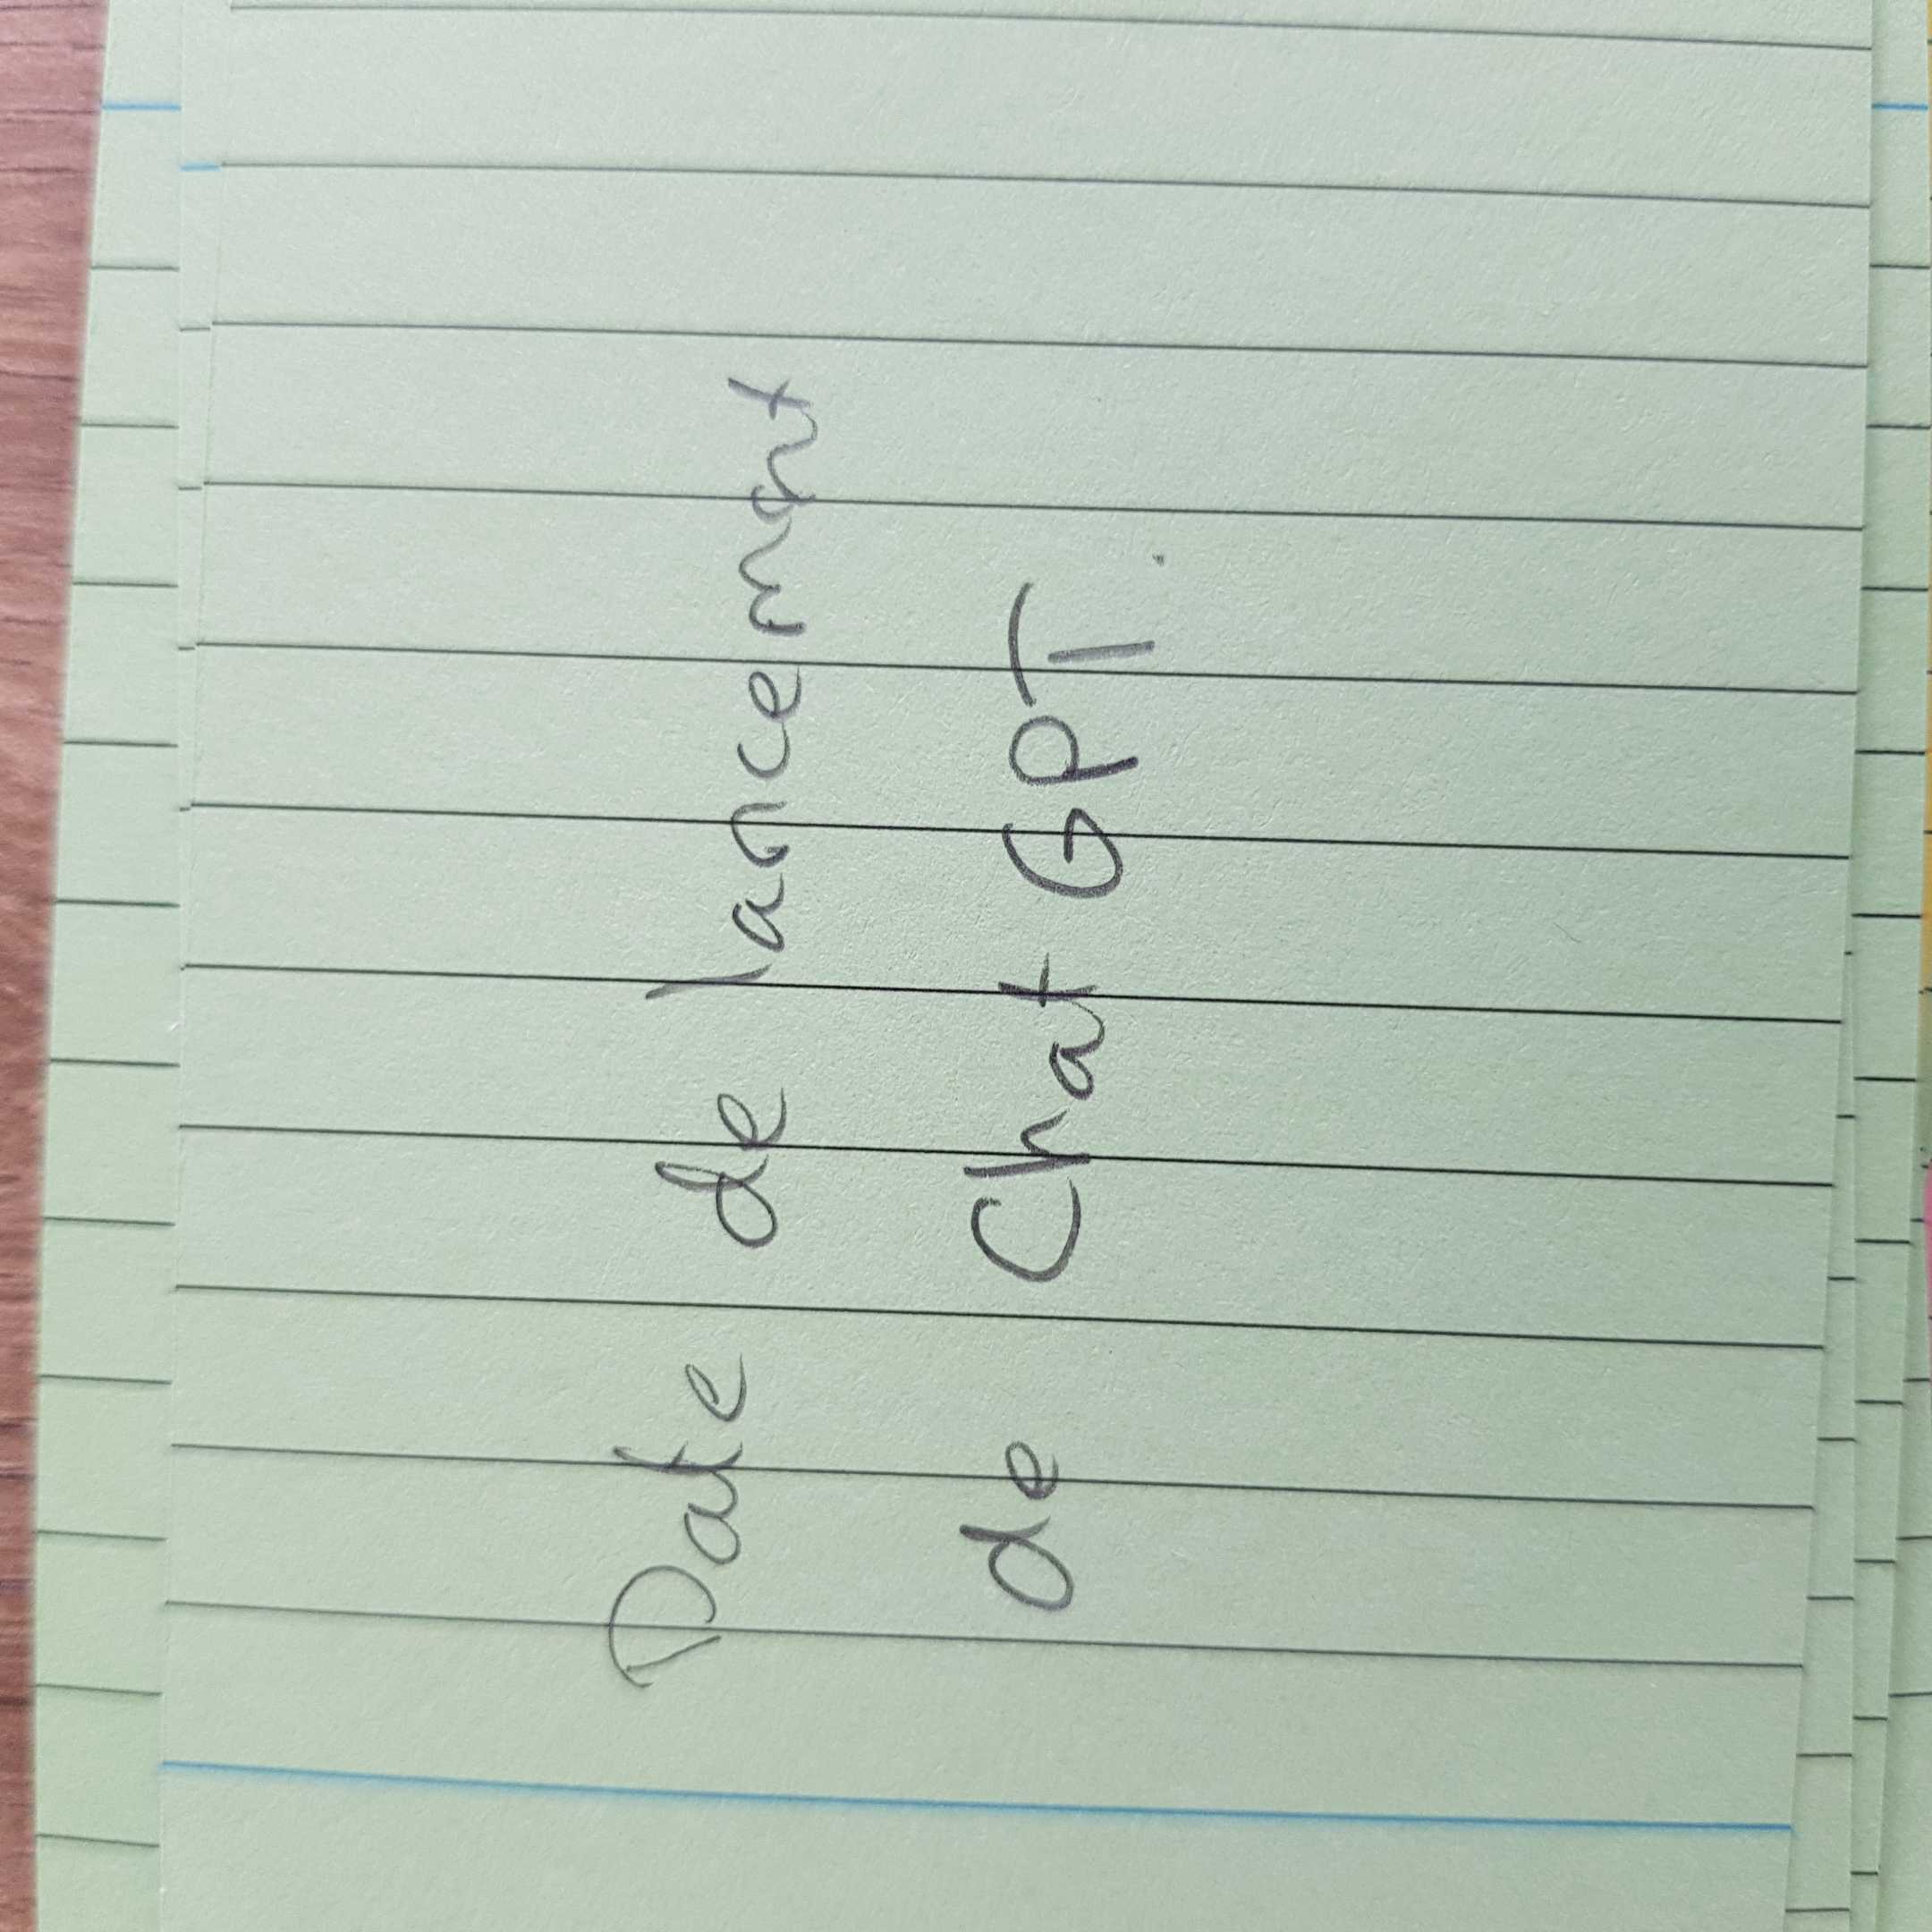 Date de lancement
de Chat GPT.